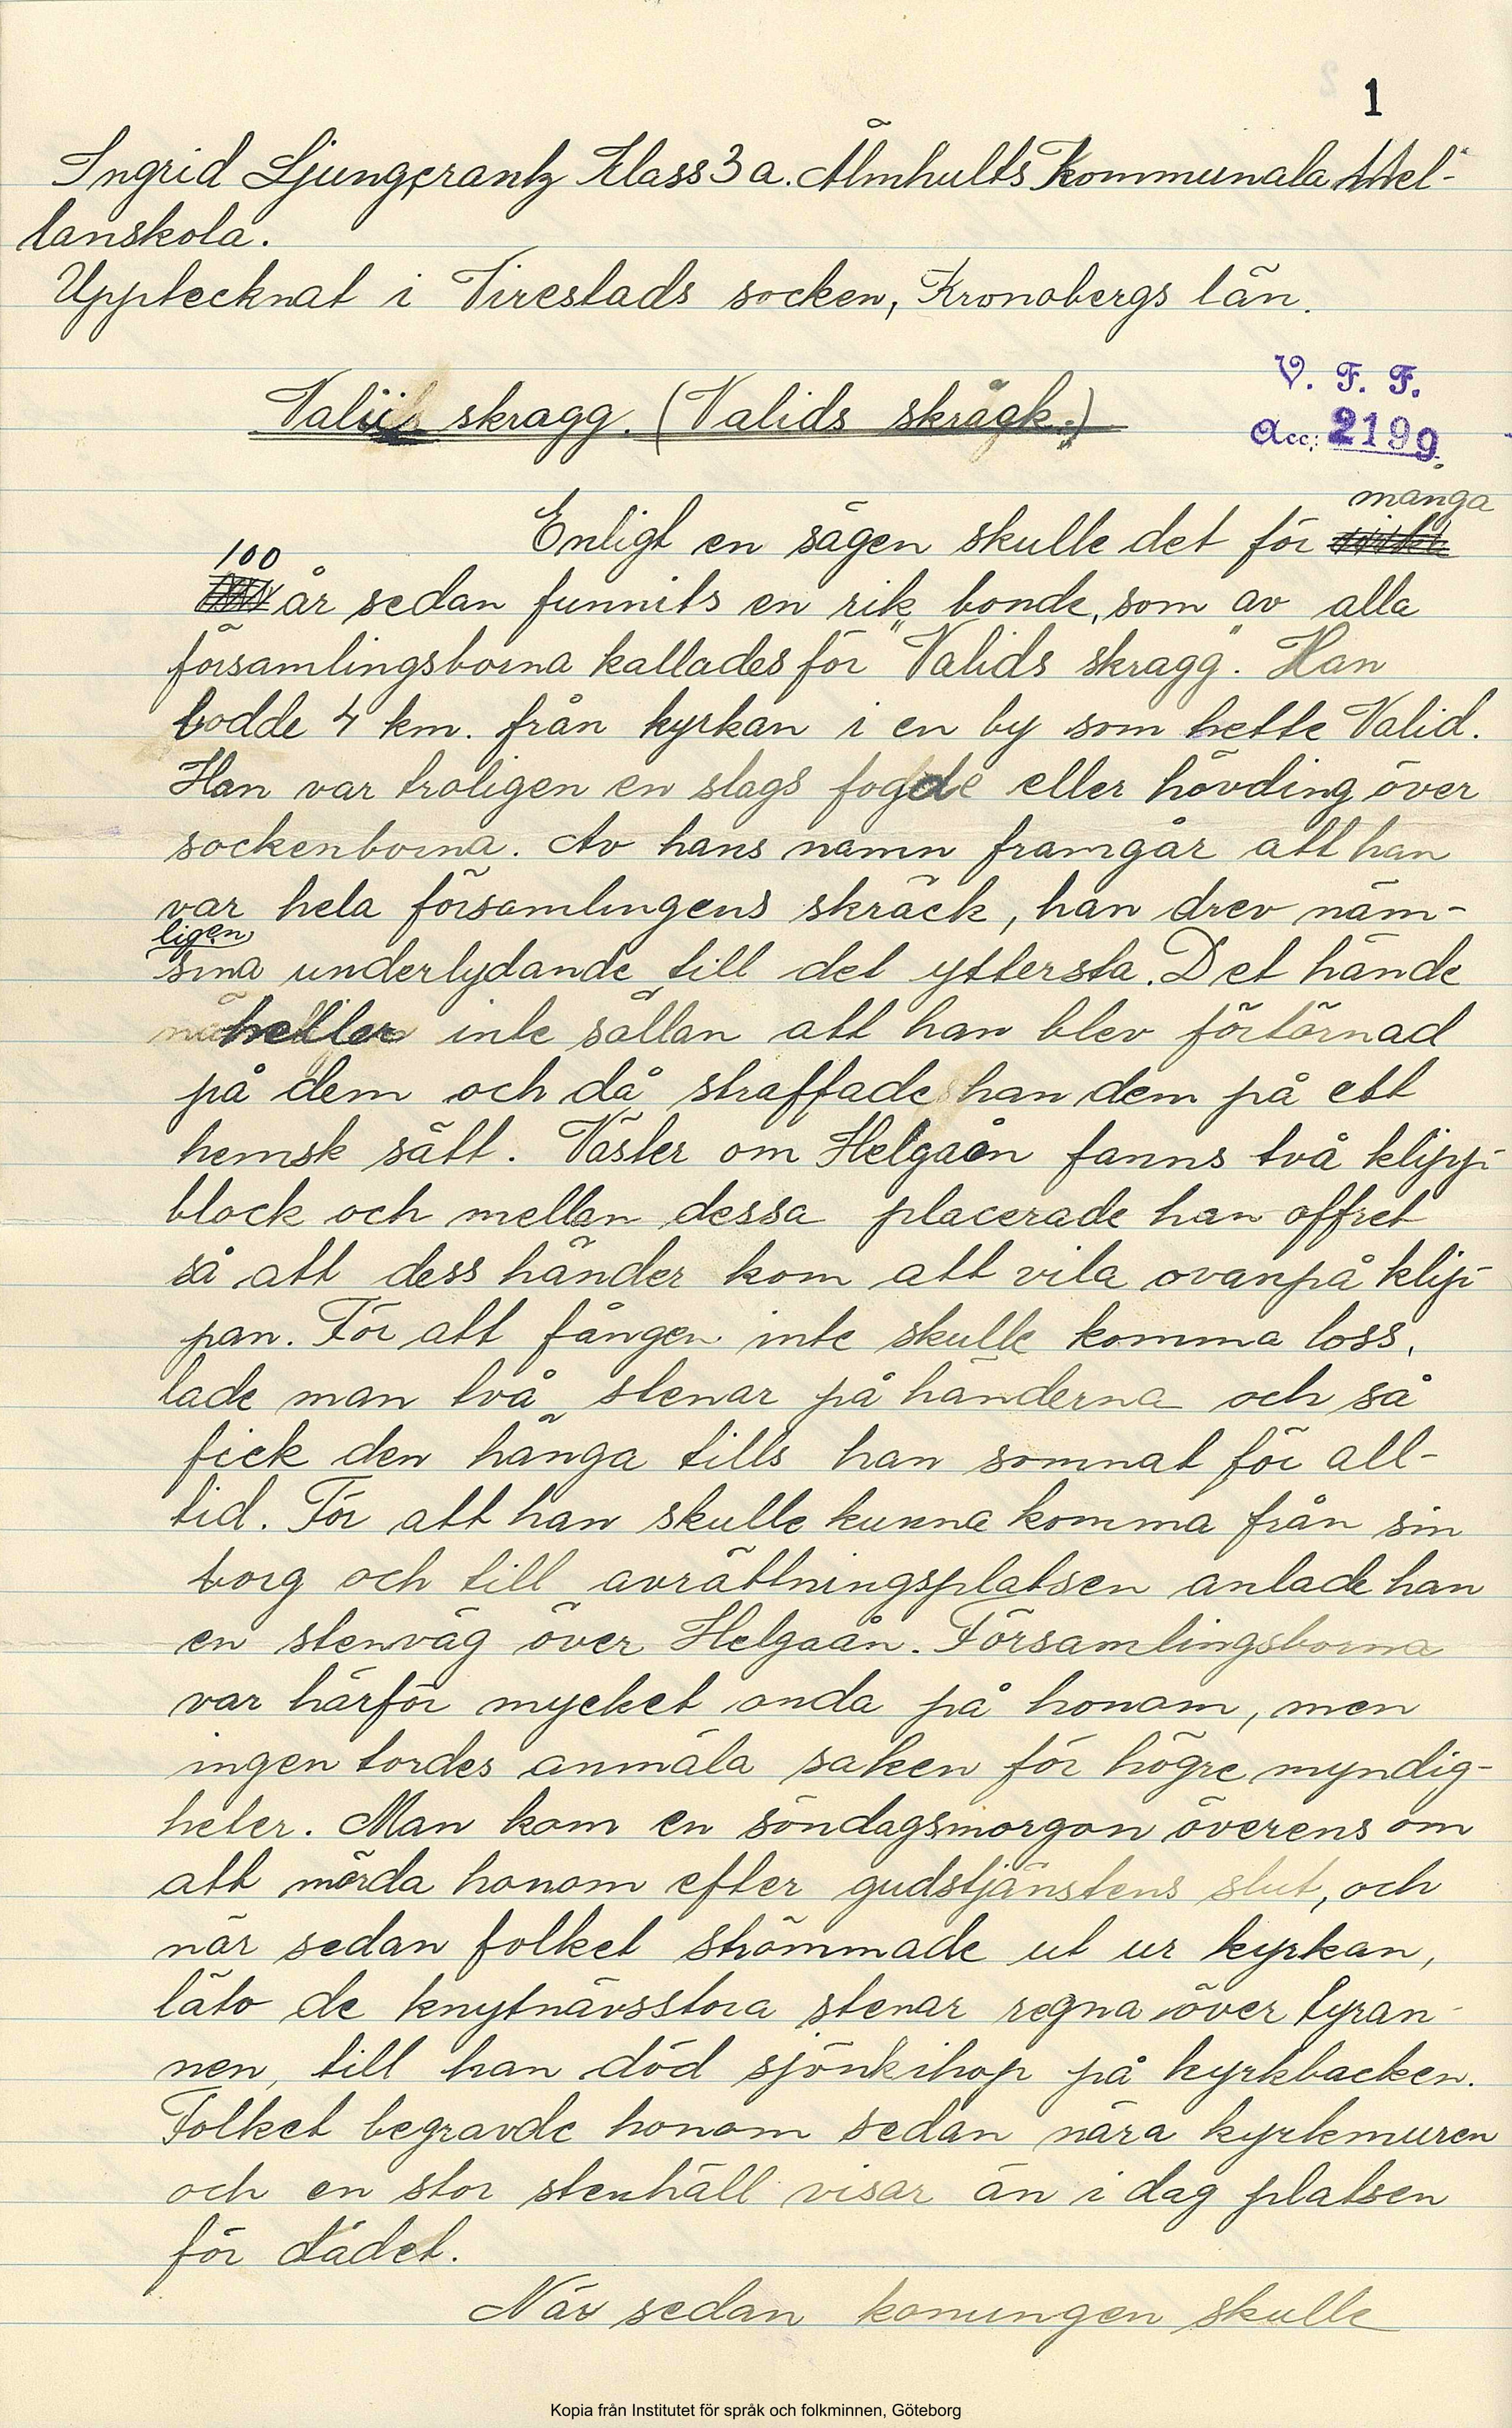 1
Ingrid Ljungcrantz Klass 3 a. Älmhults Kommunala Mel-
lanskola.
Upptecknat i Virestads socken, Kronobergs län.
V. F. F.
skragg. (Valids skragk.)
Acc: 2199
många
Enligt en sägen skulle det för
100
år sedan funnits en rik bonde, som av alla
församlingsborna kallades för "Valids skragg". Han
bodde 4 km. från kyrkan i en by som hette Valid.
Han var troligen en slags fogde eller hövding över
sockenborna. Av hans namn framgår att han
var hela församlingens skräck, han drev näm-
ligen
sina underlydande till det yttersta. Det hände
heller inte sällan att han blev förtörnad
på dem och då straffade han dem på ett
hemsk sätt. Väster om Helgaån fanns två klipp-
block och mellan dessa placerade han offret
så att dess händer kom att vila ovanpå klip-
pan. För att fången inte skulle komma loss,
lade man två stenar på händerna och så
fick den hänga tills han somnat för all-
tid. För att han skulle kunna komma från sin
borg och till avrättningsplatsen anlade han
en stenväg över Helgaån. Församlingsborna
var härför mycket onda på honom, men
ingen tordes anmäla saken för högre myndig-
heter. Man kom en söndagsmorgon överens om
att mörda honom efter gudstjänstens slut, och
när sedan folket strömmade ut ur kyrkan,
läto de knytnävsstora stenar regna över tyran-
nen, till han död sjönk ihop på kyrkbacken.
Folket begravde honom sedan nära kyrkmuren
och en stor stenhäll visar än i dag platsen
för dådet.
När sedan konungen skulle
Kopia från Institutet för språk och folkminnen, Göteborg